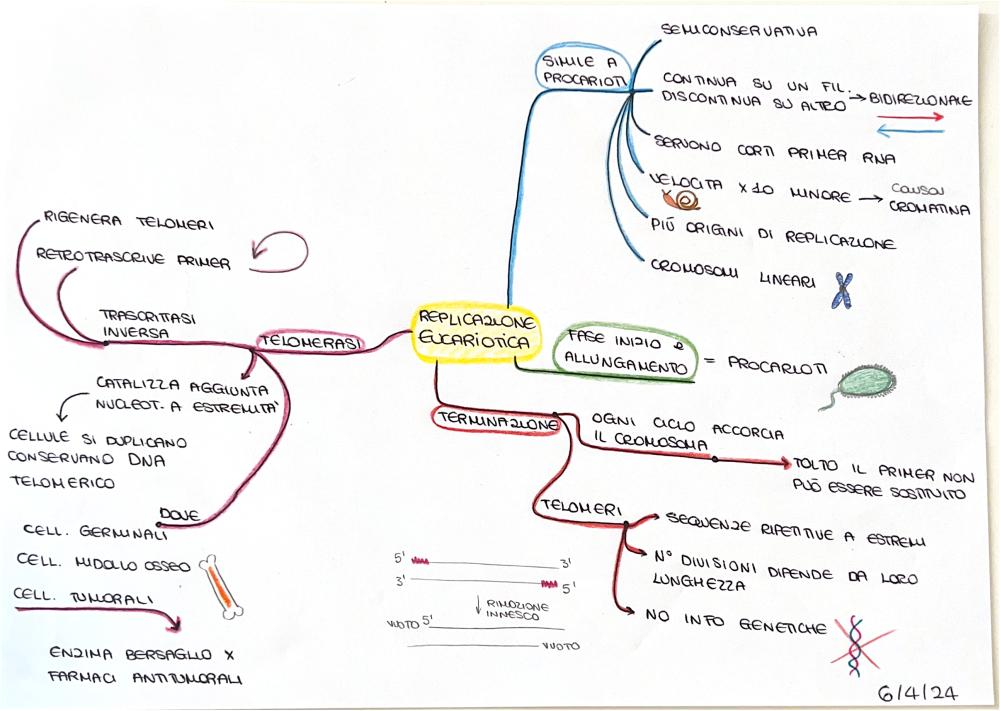 SEMICONSERVATIVA
SIMILE A
PROCARIOTI
CONTINUA SU UN FIL.
DISCONTINUA SU ALTRO → BIDIREZIONALE
SERVONO CORTI PRIMER RNA
VELOCITÀ x 10 MINORE → CAUSA
CROMATINA
PIÙ ORIGINI DI REPLICAZIONE
CROMOSOMI LINEARI
REPLICAZIONE
EUCARIOTICA
FASE INIZIO e
ALLUNGAMENTO
= PROCARIOTI
TERMINAZIONE
OGNI CICLO ACCORCIA
IL CROMOSOMA
TOLTO IL PRIMER NON
PUÒ ESSERE SOSTITUITO
TELOMERI
SEQUENZE RIPETITIVE A ESTREMI
N° DIVISIONI DIPENDE DA LORO
LUNGHEZZA
NO INFO GENETICHE
RIGENERA TELOMERI
RETROTRASCRIVE PRIMER
TRASCRITTASI
INVERSA
TELOMERASI
CATALIZZA AGGIUNTA
NUCLEOT. A ESTREMITA'
CELLULE SI DUPLICANO
CONSERVANO DNA
TELOMERICO
DOVE
CELL. GERMINALI
CELL. MIDOLLO OSSEO
CELL. TUMORALI
ENZIMA BERSAGLIO x
FARMACI ANTITUMORALI
5' 3'
3' 5'
RIMOZIONE
INNESCO
VUOTO 5'
VUOTO
6/4/24